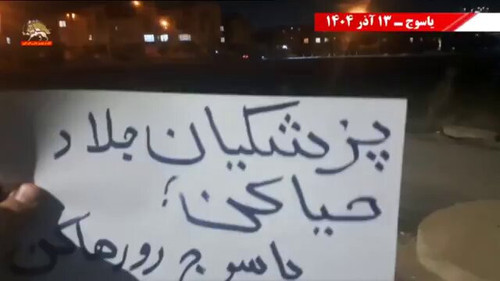 یاسوج ــ ۱۳ آذر ۱۴۰۴
پزشکیان جلاد
حیا کن؛
یاسوج رو رها کن